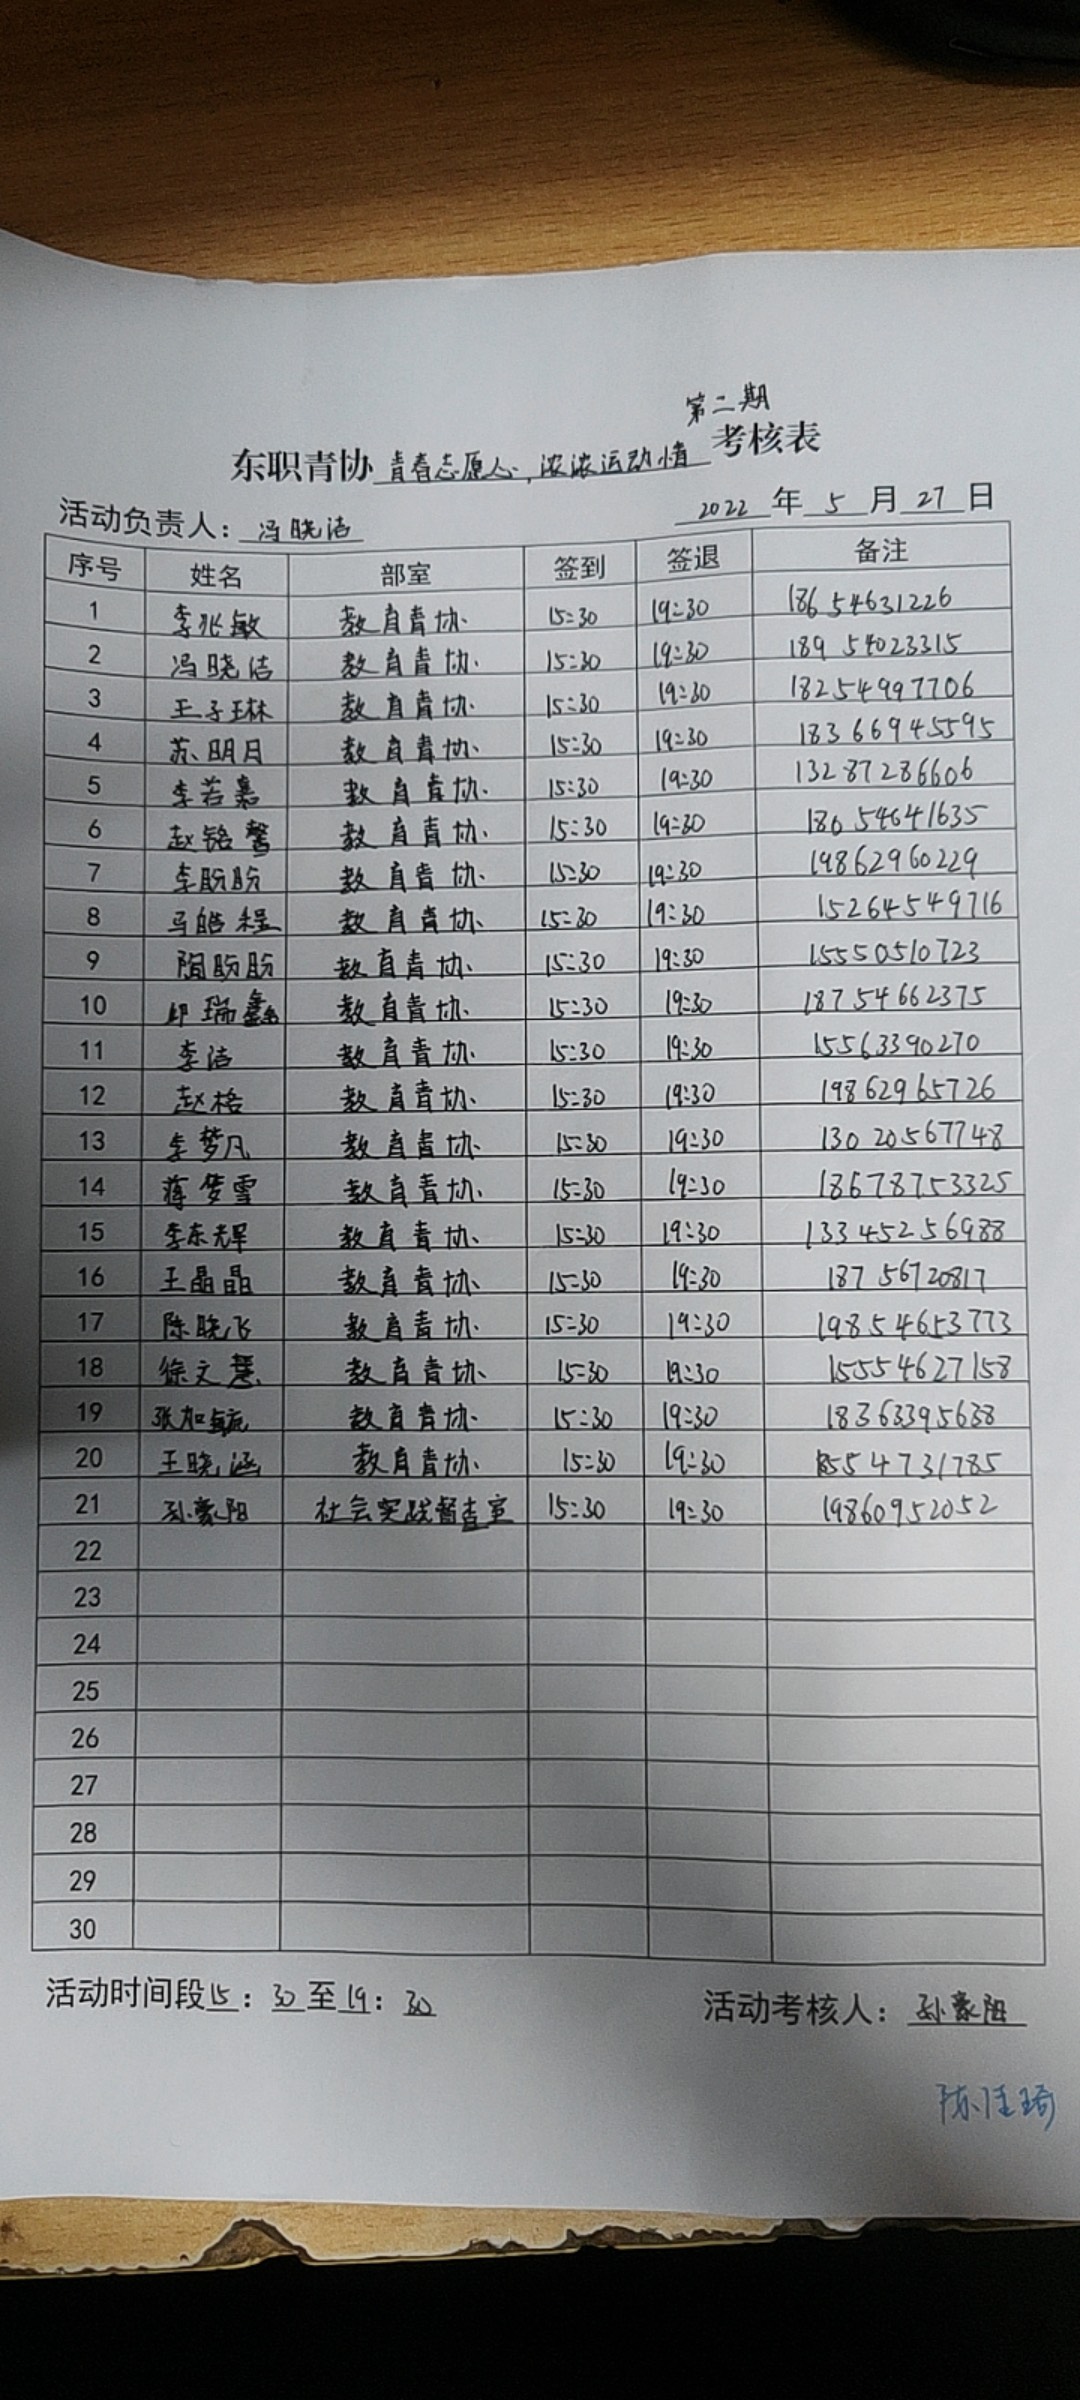 第二期
东职青协 青春志愿心,浓浓运动情 考核表
活动负责人：冯晓洁 2022 年 5 月 27 日
序号 姓名 部室 签到 签退 备注
1 李兆敏 教育青协 15:30 19:30 18654631226
2 冯晓洁 教育青协 15:30 19:30 18954023315
3 王子琳 教育青协 15:30 19:30 18254997706
4 苏明月 教育青协 15:30 19:30 18366945595
5 李若嘉 教育青协 15:30 19:30 13287286606
6 赵铭馨 教育青协 15:30 19:30 18654641635
7 李盼盼 教育青协 15:30 19:30 19862960229
8 马皓程 教育青协 15:30 19:30 15264549716
9 陶盼盼 教育青协 15:30 19:30 15550510723
10 瑞鑫 教育青协 15:30 19:30 18754662375
11 李洁 教育青协 15:30 19:30 15563390270
12 赵格 教育青协 15:30 19:30 19862965726
13 李梦凡 教育青协 15:30 19:30 13020567748
14 蒋梦雪 教育青协 15:30 19:30 18678753325
15 李东辉 教育青协 15:30 19:30 13345256988
16 王晶晶 教育青协 15:30 19:30 18756720817
17 陈晓飞 教育青协 15:30 19:30 19854653773
18 徐文慧 教育青协 15:30 19:30 15554627158
19 张加毓 教育青协 15:30 19:30 18363395638
20 王晓涵 教育青协 15:30 19:30 15554731785
21 孙豪阳 社会实践督查室 15:30 19:30 19860952052
22
23
24
25
26
27
28
29
30
活动时间段15：30至19：30 活动考核人：孙豪阳
陈佳琦